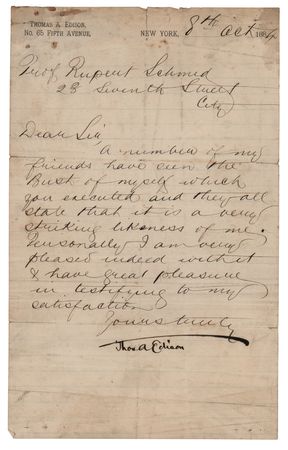 THOMAS A EDISON,
No. 65 FIFTH AVENUE,
NEW YORK, 8th Oct 1884
Prof Rupert Schmid
28 Seventh Street
City
Dear Sir,
A number of my
friends have seen the
Bust of myself which
you executed and they all
state that it is a very
striking likeness of me.
Personally I am very
pleased indeed with it
& have great pleasure
in testifying to my
satisfaction
Yours truly
Thos. A Edison